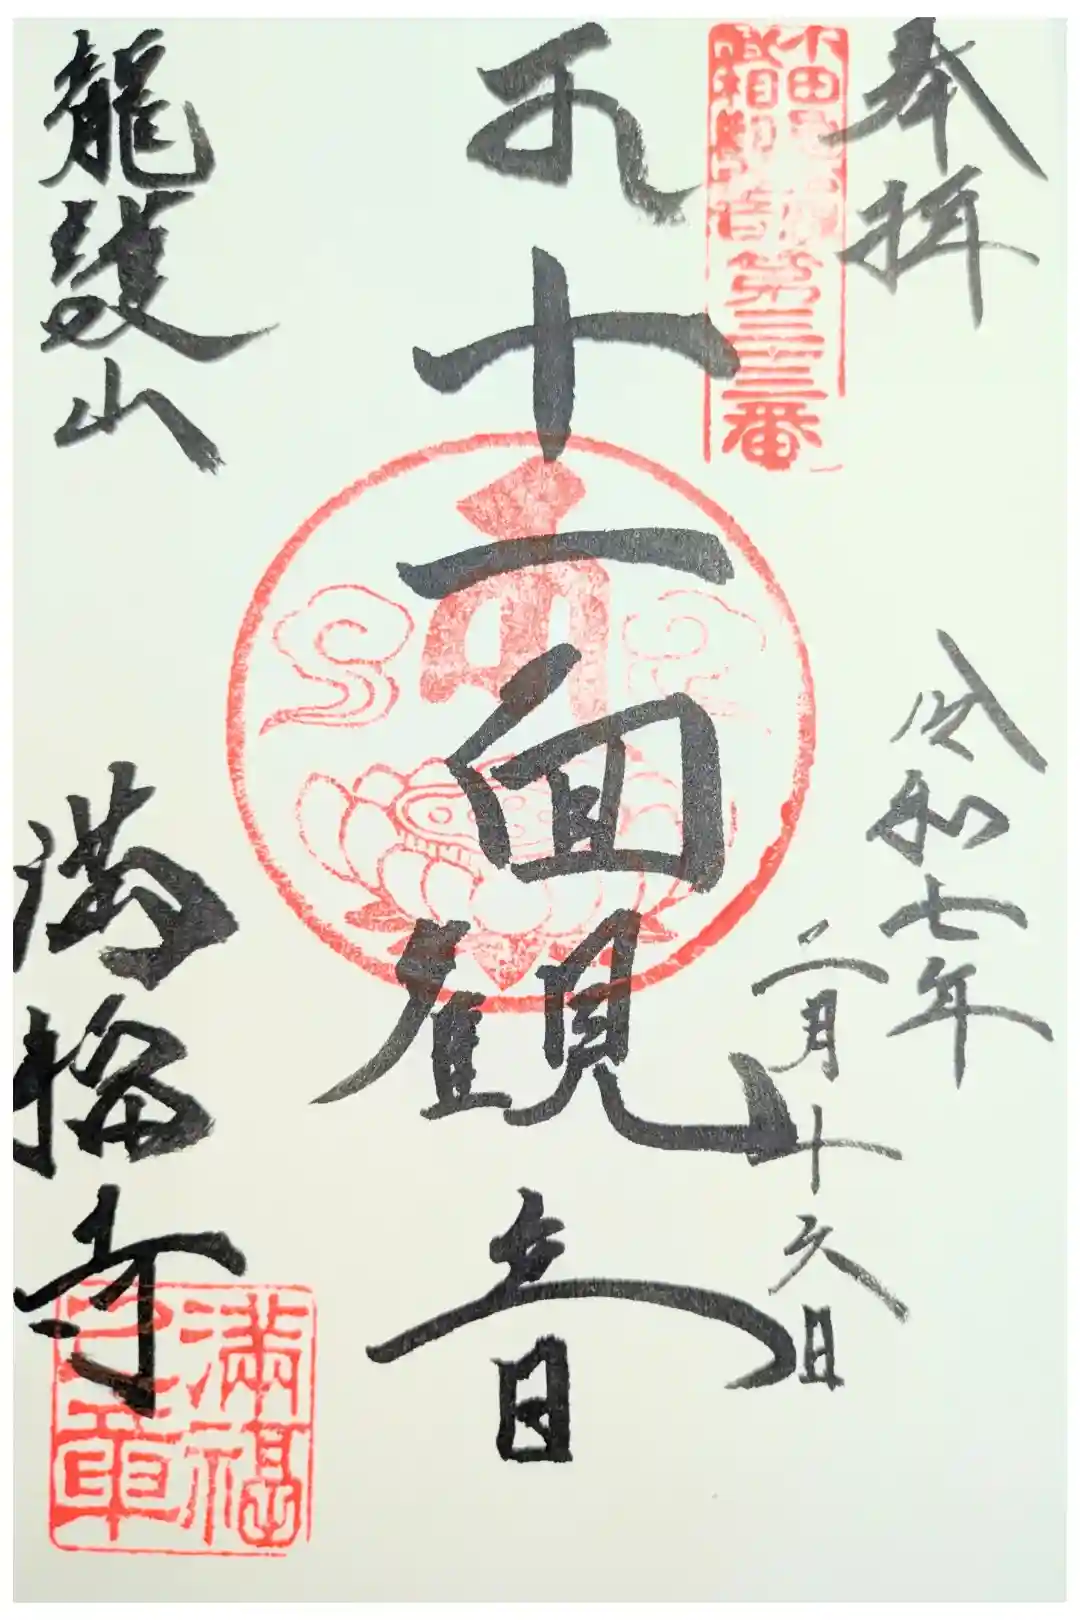 奉拝
第三十三番
令和七年
二月十六日
十一面観音
龍護山
満福寺
滿福
之章